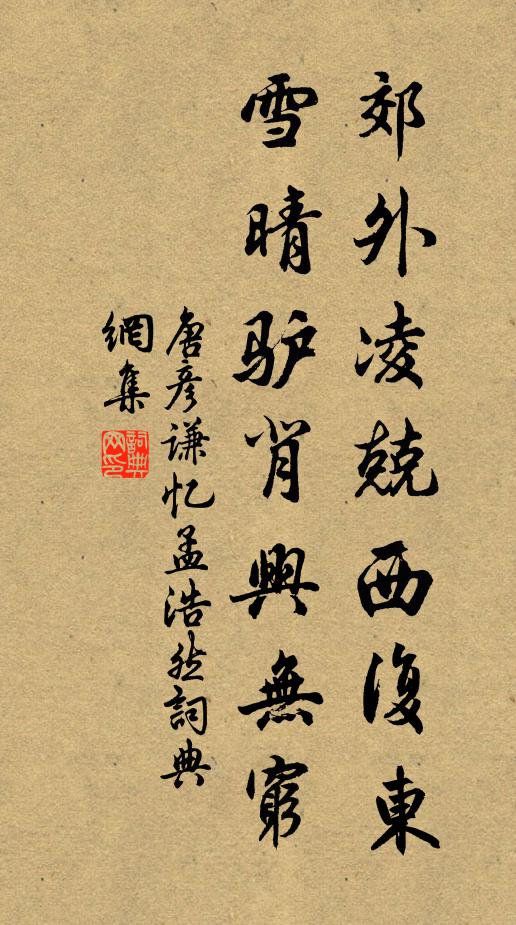 郊外凌兢西復東
雪晴驴背興無窮
唐彦谦忆孟浩然詞典
網集
詞典網印